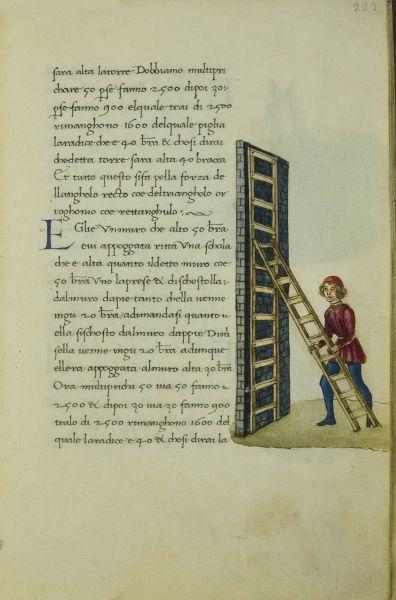 222
sara alta latorre Dobbiamo multipri
chare 50 pse fanno 2500 dipoi 30
pse fanno 900 elquale trai di 2500
rimanghono 1600 delquale piglia
laradice che e 40 bra & chosi dirai
chedetta torre sara alta 40 bracca
Et tutto questo sifa pella forza de
llangholo recto coe deltriangholo or
toghonio coe rettanghulo
EGlie Vnmuro che alto 50 bra
evi appoggata ritta Vna schala
che e alta quanto ildetto muro coe
50 bra Vno laprese & dischostolla
dalmuro dapie tanto chella uenne
ingu 20 bra adimandasi quanto
ella sischosto dalmuro dappie Dira
sella uenne ingu 20 bra adunque
ellera appoggata almuro alta 30 bra
Ora multipricha 50 uia 50 fanno
2500 & dipoi 30 uia 30 fanno 900
tralo di 2500 rimanghono 1600 del
quale laradice e 40 & chosi dirai la